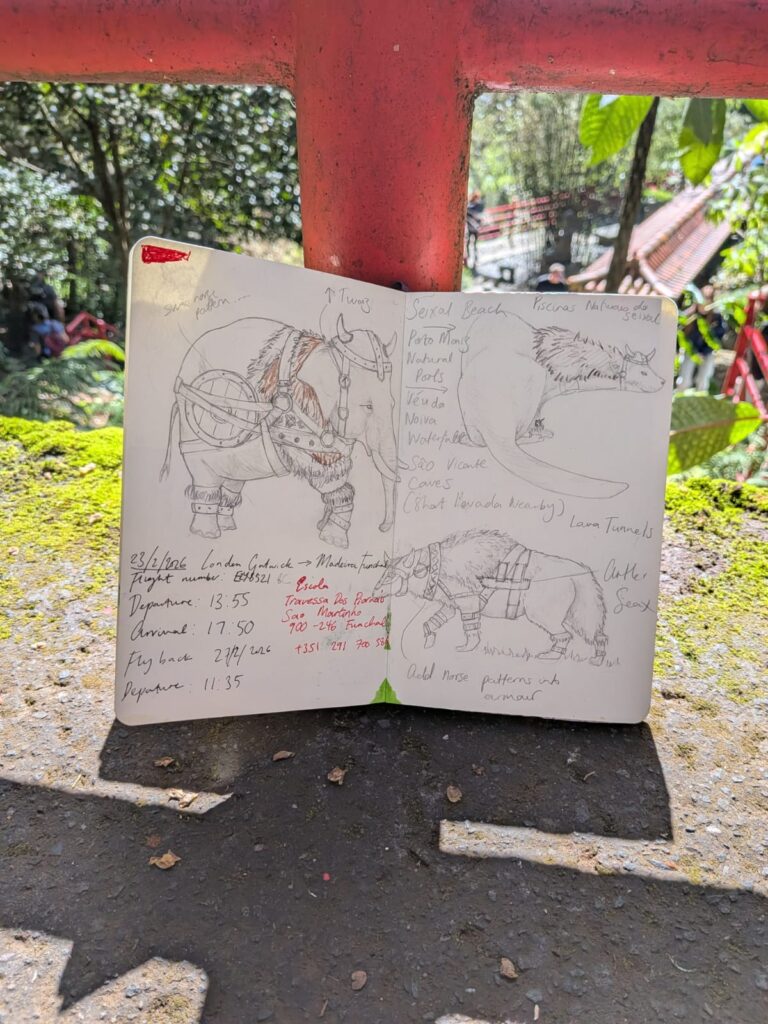 some norse
pattern....
↑ Twoz
23/2/2026 London Gatwick → Madeira Funchal
Flight number: 8521
Departure: 13:55
Arrival: 17:50
Fly back 27/2/2026
Depature: 11:35
Escola
Travessa Dos
Sao Martinho
900-246 Funchal
+351 291 700
Seixal Beach
Piscinas Naturais do
Seixal
Porto Moniz
Natural
Véu da
Noiva
Waterfall
São Vicente
Caves
(Short Levada Nearby)
Lava Tunnels
Seax
Add norse patterns into
armour